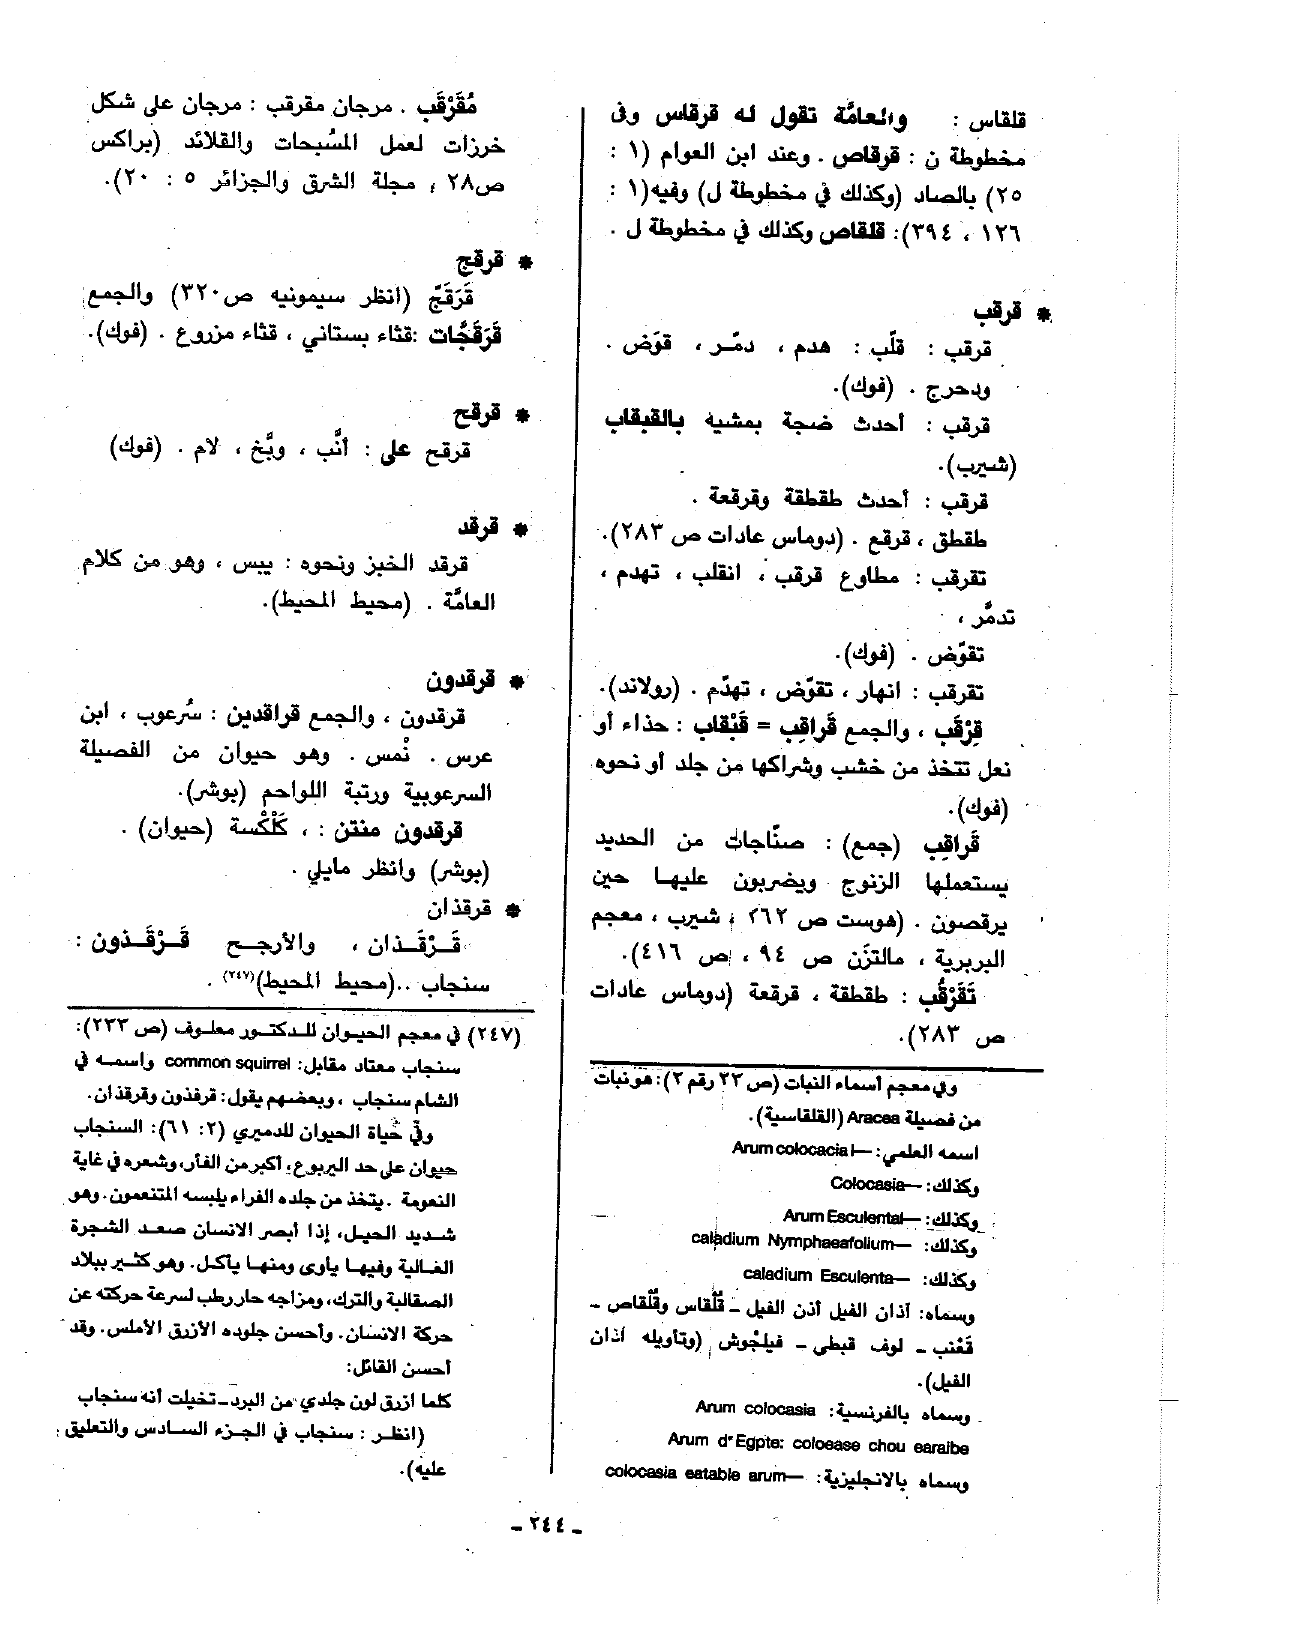 قلقاس : والعامَّة تقول له قرقاس وفى
مخطوطة ن : قوقاص . وعند ابن العوام (١ :
٢٥) بالصاد (وكذلك في مخطوطة ل) وفيه (١ :
١٢٦ ، ٣٩٤): قلقاص وكذلك في مخطوطة ل .
* قرقب
قرقب : قلّب : هدم ، دمّر ، قوّض .
ودحرج . (فوك).
قرقب : أحدث ضجة بمشيه بالقبقاب
(شيرب).
قرقب : أحدث طقطقة وقرقعة .
طقطق ، قرقع . (دوماس عادات ص ٢٨٣).
تقرقب : مطاوع قرقب ، انقلب ، تهدم ،
تدمَّر ،
تقوّض . (فوك).
تقرقب : انهار ، تقوّض ، تهدّم . (رولاند).
قِرْقَب ، والجمع قَراقِب = قَبْقاب : حذاء أو
نعل تتخذ من خشب وشراكها من جلد أو نحوه
(فوك).
قَراقِب (جمع) : صنّاجات من الحديد
يستعملها الزنوج ويضربون عليها حين
يرقصون . (هوست ص ٢٦٢ ؛ شيرب ، معجم
البربرية ، مالتزن ص ٩٤ ، ص ٤١٦).
تَقَرْقُب : طقطقة ، قرقعة (دوماس عادات
ص ٢٨٣).
وفي معجم أسماء النبات (ص ٢٣ رقم ٢): هونبات
من فصيلة Aracea (القلقاسية).
اسمه العلمي: — Arum colocacial
وكذلك: — Colocasia
وكذلك: — Arum Esculental
وكذلك: — caladium Nymphaeafolium
وكذلك: — caladium Esculenta
وسماه: آذان الفيل أذن الفيل ـ قُلْقاس وقُلْقاص ـ
قَعْنب ـ لوف قبطي ـ فيلجْوش (وتأويله آذان
الفيل).
وسماه بالفرنسية: Arum colocasia
Arum d'Egpte: coloease chou earaibe
وسماه بالانجليزية: — colocasia eatable arum
مُقَرْقَب . مرجان مقرقب : مرجان على شكل
خرزات لعمل المسُبحات والقلائد (براكس
ص٢٨ ؛ مجلة الشرق والجزائر ٥ : ٢٠).
* قرقج
قَرَقَجّ (انظر سيمونيه ص ٣٢٠) والجمع
قَرَقجُّات :قثاء بستاني ، قثاء مزروع . (فوك).
* قرقح
قرقح على : أنَّب ، وبَّخ ، لام . (فوك)
* قرقد
قرقد الخبز ونحوه : يبس ، وهو من كلام
العامَّة . (محيط المحيط).
* قرقدون
قرقدون ، والجمع قراقدين : سُرعوب ، ابن
عرس . نْمس . وهو حيوان من الفصيلة
السرعوبية ورتبة اللواحم (بوشر).
قرقدون منتن : ، كَلْكْسة (حيوان) .
(بوشر) وانظر مايلي .
* قرقذان
قَـرْقَـذان ، والأرجح قَـرْقَـذون :
سنجاب ..(محيط المحيط)(٢٤٧) .
(٢٤٧) في معجم الحيوان للدكتور معلوف (ص ٢٣٣):
سنجاب معتاد مقابل: common squirrel واسمه في
الشام سنجاب ، وبعضهم يقول: قرفذون وقرقذان.
وفي حُياة الحيوان للدميري (٢: ٦١): السنجاب
حيوان على حد اليربوع، أكبر من الفأر، وشعره في غاية
النعومة . يتخذ من جلده الفراء يلبسه المتنعمون. وهو
شديد الحيل، إذا أبصر الانسان صعد الشجرة
الغالية وفيها يأوى ومنها يأكل. وهو كثير ببلاد
الصقالبة والترك، ومزاجه حار رطب لسرعة حركته عن
حركة الانسان. وأحسن جلوده الأزرق الأملس. وقد
أحسن القائل:
كلما ازرق لون جلدي من البرد ـ تخيلت أنه سنجاب
(انظر : سنجاب في الجزء السادس والتعليق
عليه).
ـ ٢٤٤ ـ